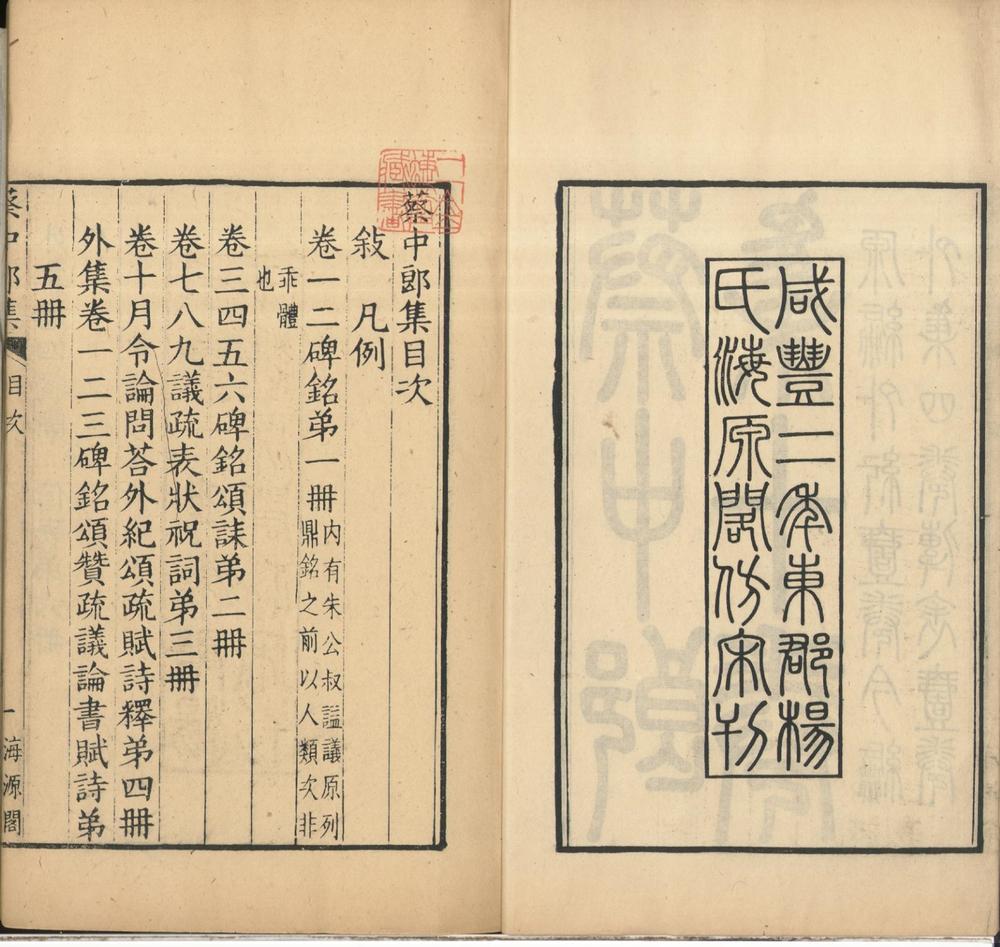 咸豐二年東郡楊
氏海原閣仿宋刊
蔡中郎集目次
敍 凡例
卷一二碑銘弟一冊內有朱公叔謚議原列
鼎銘之前以人類次非
乖體
也
卷三四五六碑銘頌誄弟二冊
卷七八九議疏表狀祝詞弟三冊
卷十月令論問荅外紀頌疏賦詩釋弟四冊
外集卷一二三碑銘頌贊疏議論書賦詩弟
五冊
蔡中郎集 目次 一 海源閣